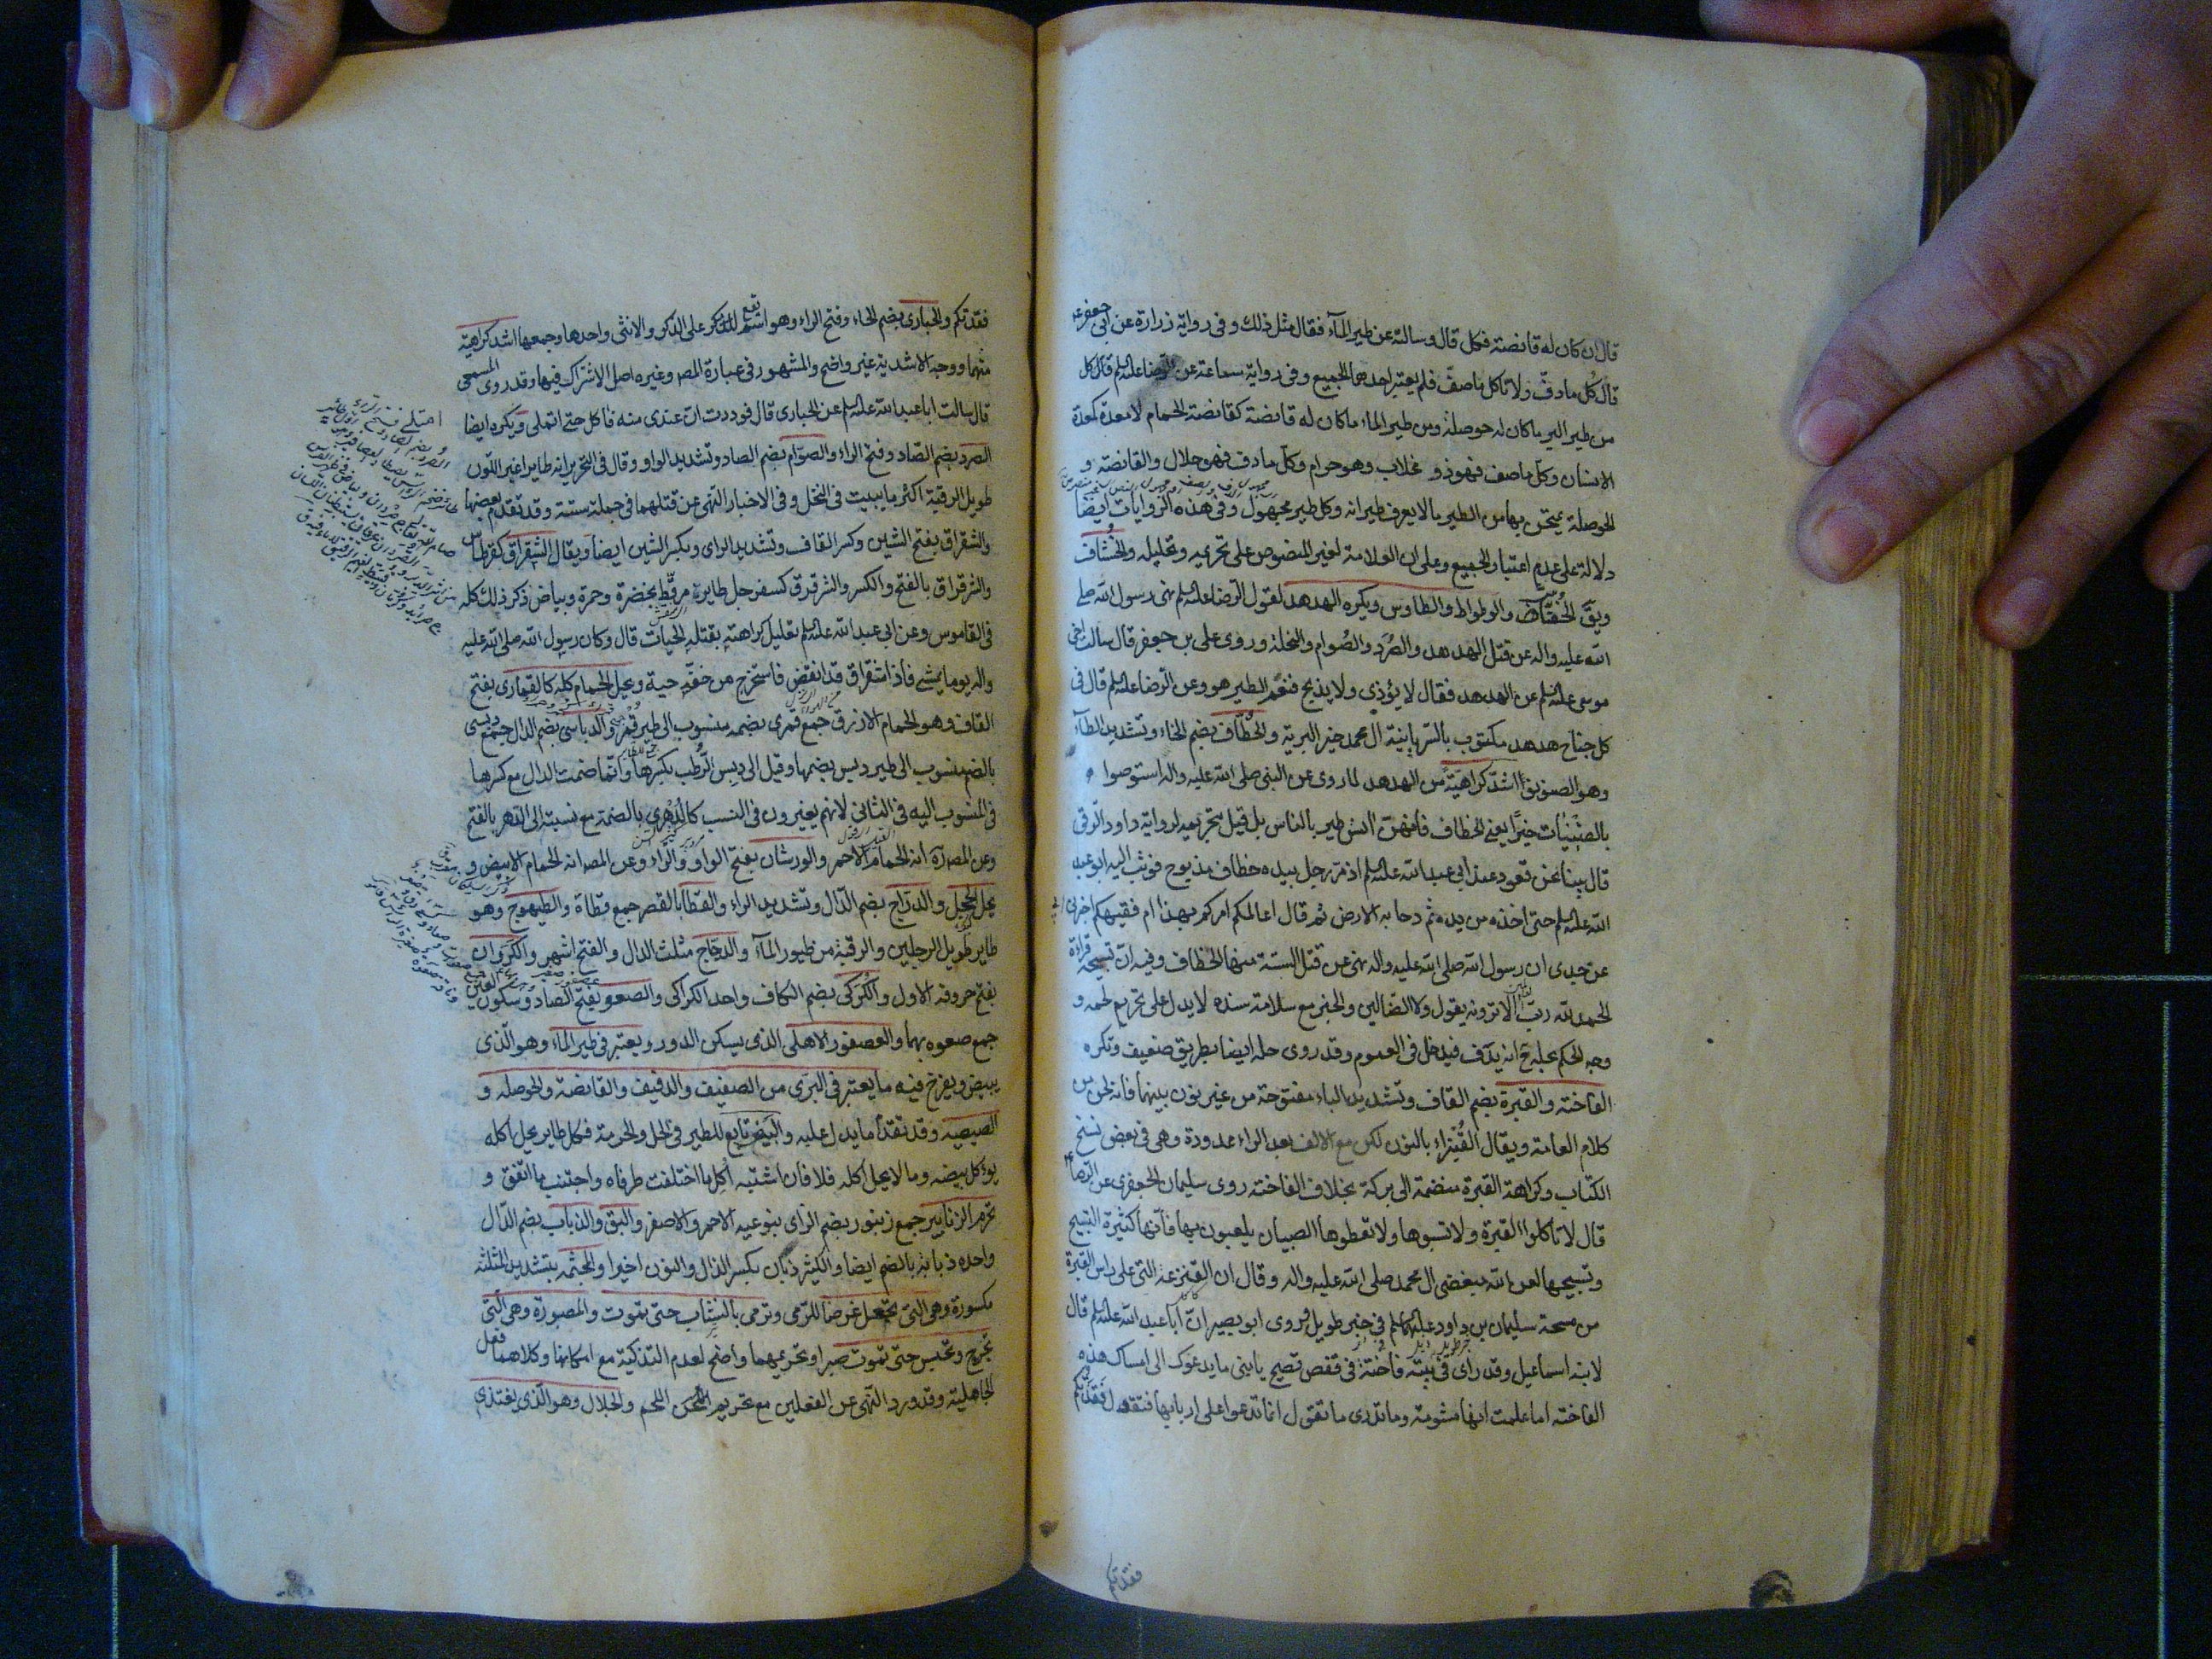 قال ان كان له قانصة فكل قال وسالته عن طير المآء فقال مثل ذلك وفى رواية زرارة عن ابى جعفر ع
قال كُل ما دفّ ولا تاكل ما صفّ فلم يعتبر احدهما الجميع وفى رواية سماعة عن الرضا عليه السلم قال كل
من طير البر ما كان له حوصلة ومن طير الماء ما كان له قانصة كقانصة الحمام لا معدة كمعدة
الانسان وكل ما صف فهو ذو غلاب وهو حرام وكل ما دف فهو حلال والقانصة و
الحوصلة يمتحن بها من الطير ما لا يعرف طيرانه وكل طير مجهول وفى هذه الروايات ايضا
دلالة على عدم اعتبار الجميع وعلى ان العلامة لغير المنصوص على تحريمه وتحليله والخشاف
ويق الخفاش والوطواط والطاوس ويكره الهدهد لقول الرضا عليه السلم نهى رسول الله صلى
الله عليه واله عن قتل الهدهد والصُرَد والصُوام والنحلة وروى على بن جعفر قال سالت اخى
موسى عليه السلم عن الهدهد فقال لا يؤذي ولا يذبح فنعم الطير هو وعن الرضا عليه السلم قال فى
كل جناح هدهد مكتوب بالسريانية ال محمد خير البرية والخُطّاف بضم الخاء وتشديد الطآء
وهو الصنونو اشدّ كراهيةً من الهدهد لما روى عن النبى صلى الله عليه واله استوصوا
بالصنينيات خيرًا يعنى الخطاف فانهن انس طير بالناس بل قيل بتحريمه لرواية داود الرقى
قال بينا نحن قعود عند ابى عبد الله عليه السلم اذ مرّ رجل بيده خطاف مذبوح فوثب اليه ابو عبد
الله عليه السلم حتى اخذه من يده ثم دحا به الارض ثم قال اعالمكم امركم بهذا ام فقيهكم اخبرنى ابى
عن جدى ان رسول الله صلى الله عليه واله نهى عن قتل الستة منها الخطاف وفيه ان تسبيحه قراءة
الحمد لله ربّ العالمين الا ترونه يقول ولا الضالين والخبر مع سلامة سنده لا يدل على تحريم لحمه و
وجه الحكم بحله ح انه يدف فيدخل فى العموم وقد روى حله ايضا بطريق ضعيف وتكره
الفاخته والقبرة بضم القاف وتشديد الباء مفتوحة من غير نون بينهما فانه لحن من
كلام العامة ويقال القُنبراء بالنون لكن مع الالف بعد الراء ممدودة وهى فى بعض نسخ
الكتاب وكراهة القبرة منضمة الى بركة بخلاف الفاخته روى سليمان الجعفرى عن الرضا
قال لا تاكلوا القبرة ولا تسبوها ولا تعطوها الصبيان يلعبون بها فانها كثيرة التسبيح
وتسبيحها لعن الله مبغضى ال محمد صلى الله عليه واله وقال ان القنزعة التى على راس القبرة
من مسحة سليمان بن داود عليهما السلم فى خبر طويل وروى ابو بصير ان ابا عبد الله عليه السلم قال
لابنه اسماعيل وقد راى فى بيته فاختة فى قفص تصيح يا بنى ما يدعوك الى امساك هذه
الفاخته اما علمت انها مشومة وما تدرى ما تقول انما تدعوا على اربابها فتقول فقدتكم
فقدتكم
فقدتكم والحبارى بضم الحاء وفتح الراء وهو اسم يقع على الذكر والانثى واحدها وجمعها اشد كراهية
منهما ووجه الاشدية غير واضح والمشهور فى عبارة المص وغيره اصل الاشتراك فيها وقد روى المسمعى
قال سالت ابا عبد الله عليه السلم عن الحبارى قال فوددت ان عندى منه فاكل حتى اتملى ويكره ايضا
الصرد بضم الصاد وفتح الراء والصوّام بضم الصاد وتشديد الواو وقال فى التحرير انه طاير اغبر اللون
طويل الرقبة اكثر ما يبيت فى النخل وفى الاخبار النهى عن قتلهما فى جملة ستة وقد تقدم بعضها
والشقراق بفتح الشين وكسر القاف وتشديد الراى وبكسر الشين ايضا ويقال الشقراق كقرطاس
والشرقراق بالفتح والكسر والشرقرق كسفرجل طاير مرقّط بخضرة وحمرة وبياض ذكر ذلك كله
فى القاموس وعن ابى عبد الله عليه السلم تعليل كراهته بقتله الحيات قال وكان رسول الله صلى الله عليه
واله يوما يمشى فاذا شقراق قد انقض فاستخرج من خفّه حية ويحل الحمام كله كالقمارى بفتح
القاف وهو الحمام الازرق جمع قمرى بضمه منسوب الى طير قُمْر والدباسى بضم الدال جمع دبسى
بالضم منسوب الى طير دبس بضمها وقيل الى دبس الرُطب بكسرها وانما ضمت الدال مع كسرها
فى المنسوب اليه فى الثانى لانهم يغيرون فى النسب كالدُهرى بالضمة مع نسبته الى الدهر بالفتح
وعن المص ره انه الحمام الاحمر والورشان بفتح الواو والراء وعن المص انه الحمام الابيض و
يحل الحجل والدرّاج بضم الدّال وتشديد الراء والقطا بالقصر جمع قطاة والطيهوج وهو
طاير طويل الرجلين والرقبة من طيور المآء والدجاج مثلث الدال والفتح اشهر والكروان
بفتح حروفه الاول والكُركى بضم الكاف واحد الكراكى والصعو بفتح الصاد وسكون العين
جمع صعوه بهما والعصفور الاهلى الذى يسكن الدور ويعتبر فى طير الماء وهو الّذى
يبيض ويفرخ فيه ما يعتبر فى البرى من الصفيف والدفيف والقانصة والحوصله و
الصيصيه وقد تقدم ما يدل عليه والبيض تابع للطير فى الحل والحرمة فكل طاير يحل اكله
يوءكل بيضه وما لا يحل اكله فلا فان اشتبه اُكِل ما اختلفت طرفاه واجتنب ما اتفق و
تحرم الزنابير جمع زنبور بضم الزاى بنوعيه الاحمر والاصفر والبق والذباب بضم الذال
واحده ذبابة بالضم ايضا والكثير ذبان بكسر الذال والنون اخيرا والمجثمه بتشديد المثلثه
مكسورة وهى التى تجعل غرضا للرّمى وترمى بالنشاب حتى تموت والمصبورة وهى التى
تجرح وتحبس حتى تموت صبرا وتحريمهما واضح لعدم التذكية مع امكانها وكلاهما فعل
الجاهلية وقد ورد النهى عن الفعلين مع تحريم اللحم والجلال وهو الّذى يغتذى